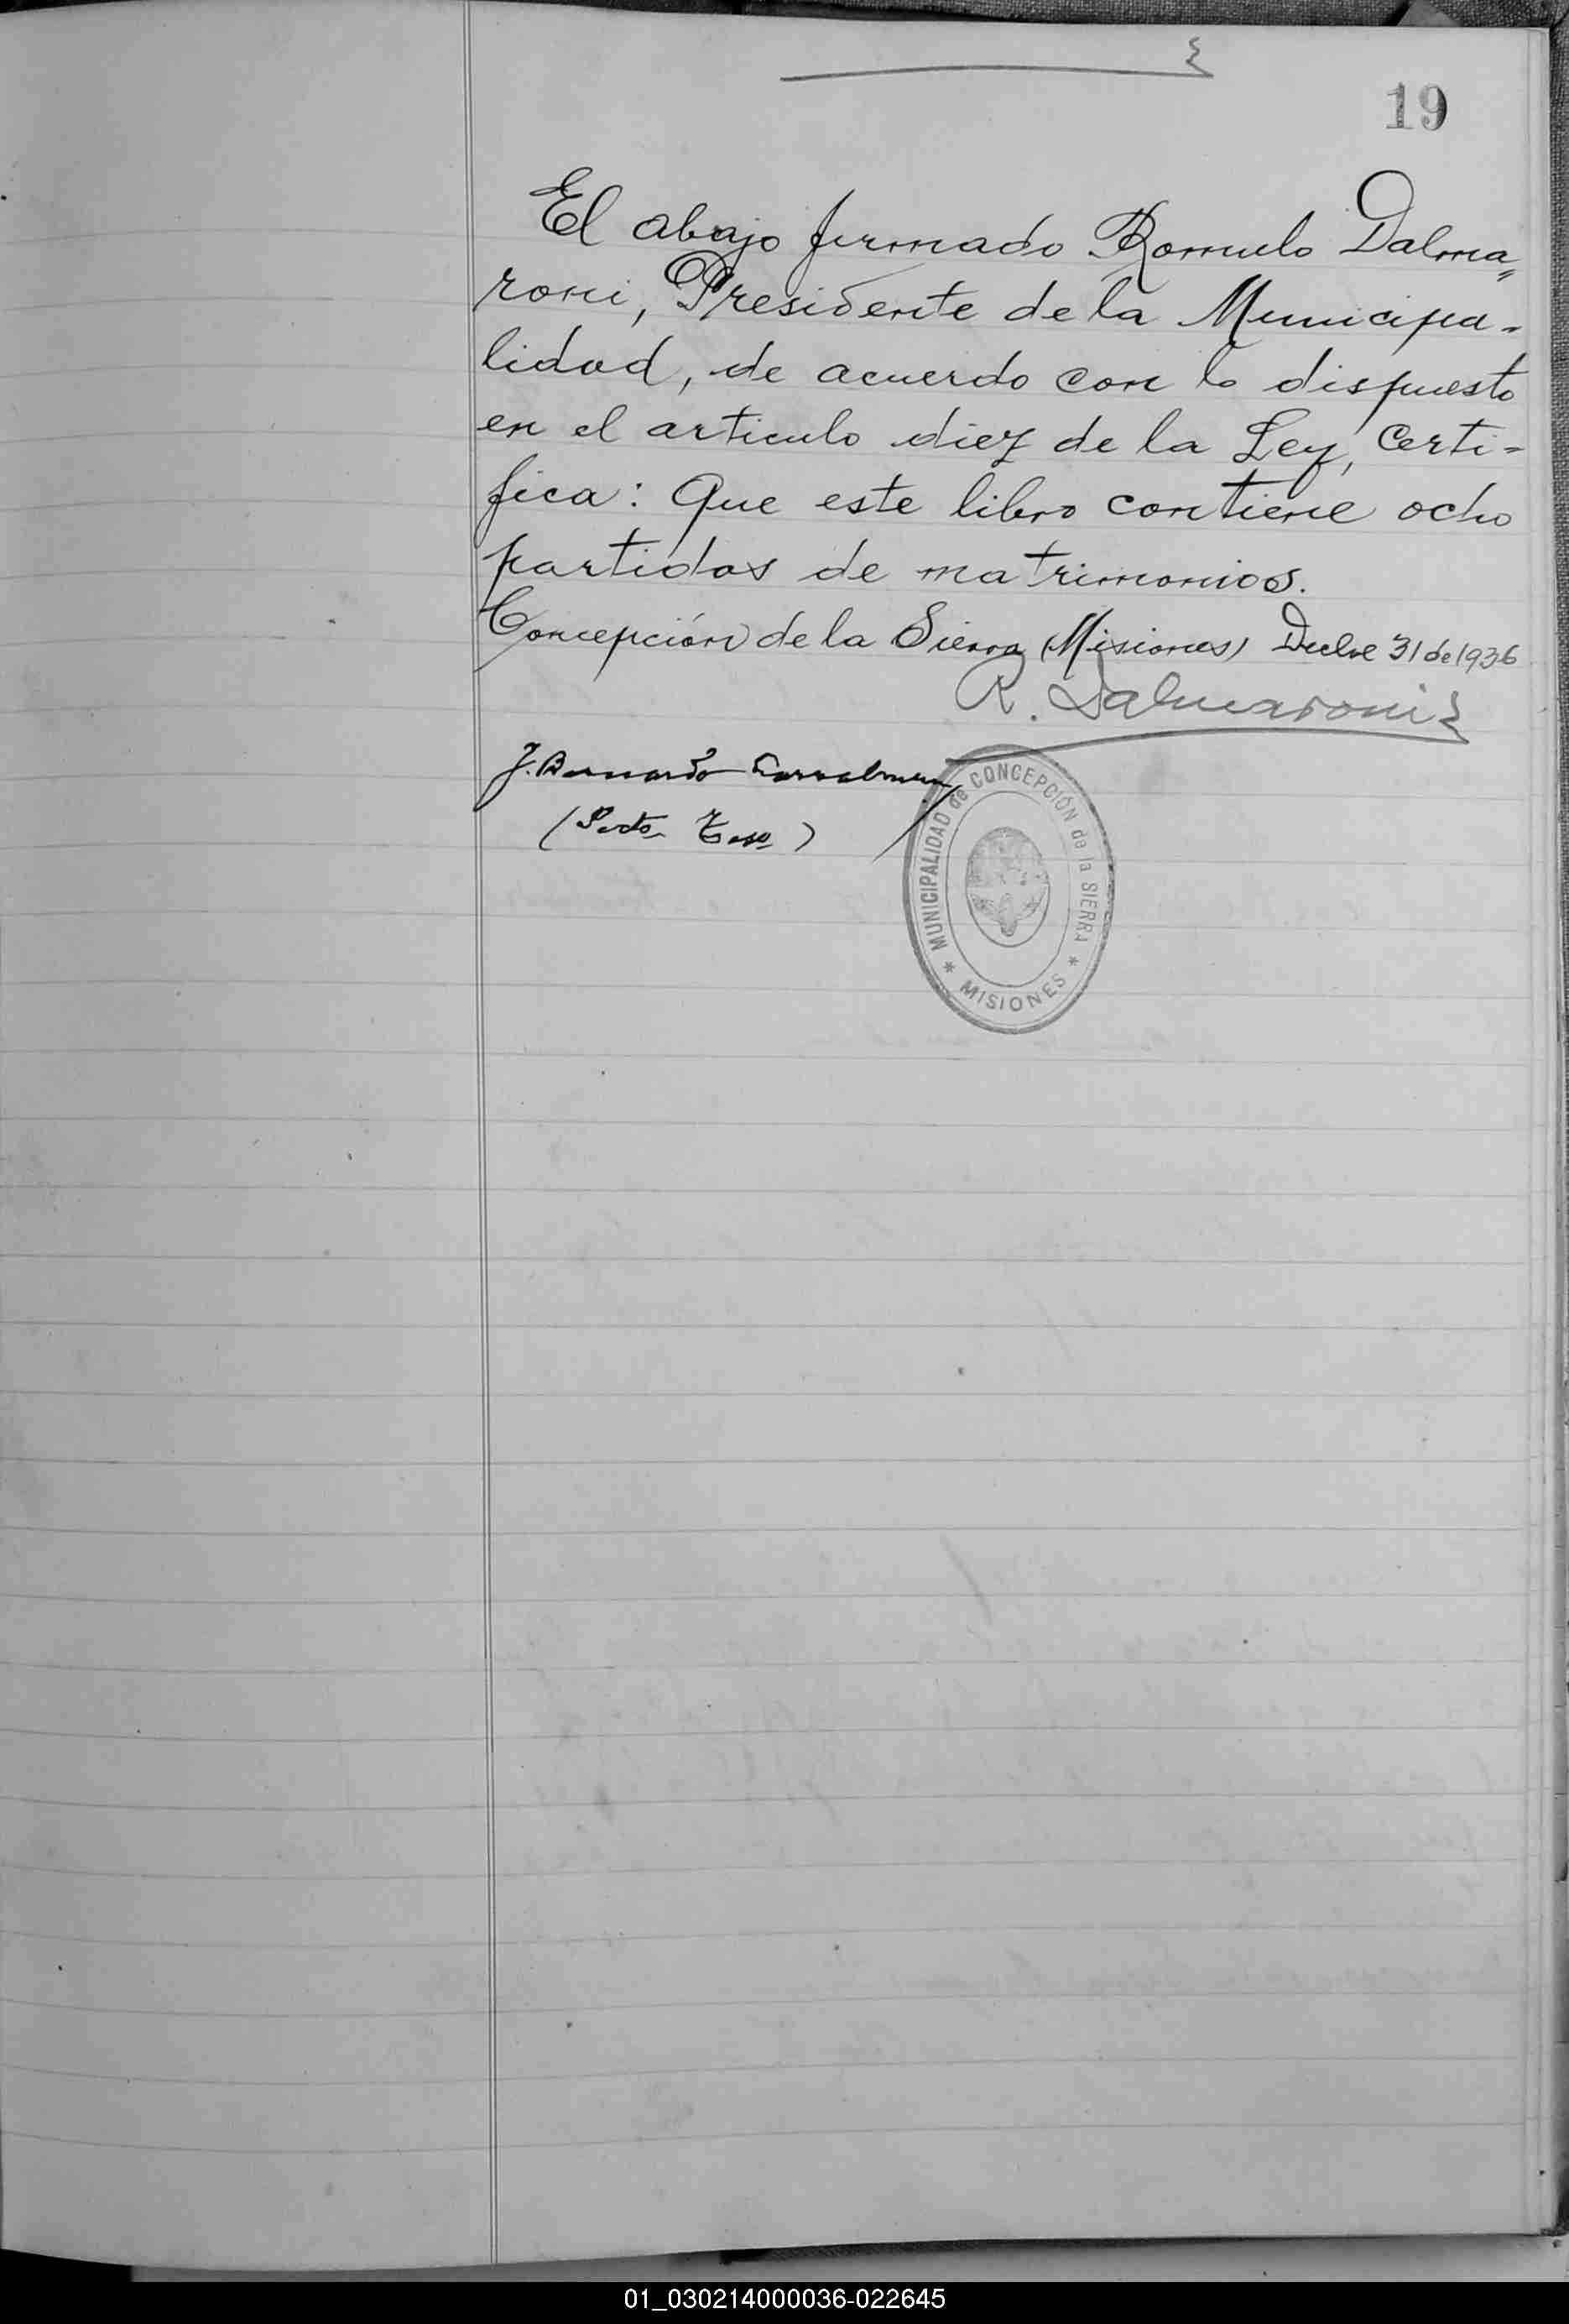 19
El abajo firmado Romulo Dalma=
roni, Presidente de la Municipa-
lidad, de acuerdo con lo dispuesto
en el articulo diez de la Ley, Certi=
fica: Que este libro contiene ocho
partidas de matrimonios.
Concepción de la Sierra (Misiones) Dicbre 31 de 1936
R. Dalmaroni
J. Bernardo
MUNICIPALIDAD de CONCEPCIÓN de la SIERRA
* MISIONES *
01_030214000036-022645